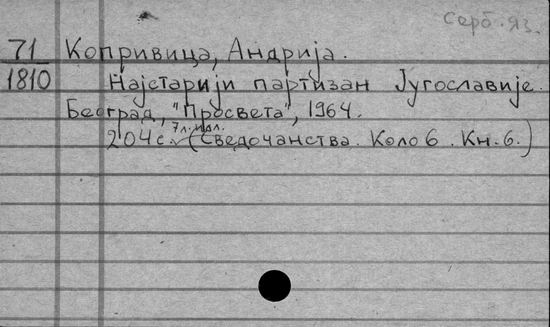 Серб. яз.
71 Копривица, Андрија.
1810 Најстарији партизан Југославије.
Београд, "Просвета", 1964.
7 л. илл.
204 с. (Сведочанства. Коло 6. Кн. 6.)